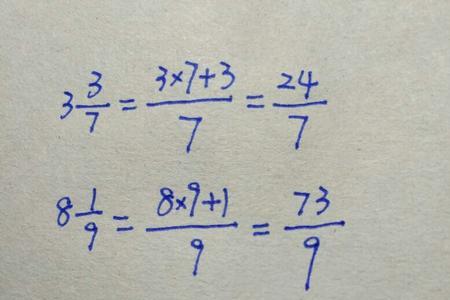 3 3/7 = (3×7+3)/7 = 24/7
8 1/9 = (8×9+1)/9 = 73/9